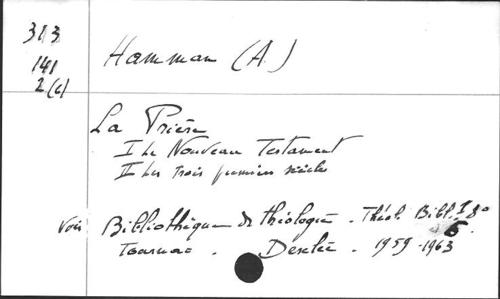 313
141
2(c)
Hamman (A.)
La Prière
I Le Nouveau Testament
II Les trois premiers siècles
Voir Bibliothèque de théologie. Théol. Bibl. I 8°
6.
Tournai. Desclée. 1959-1963